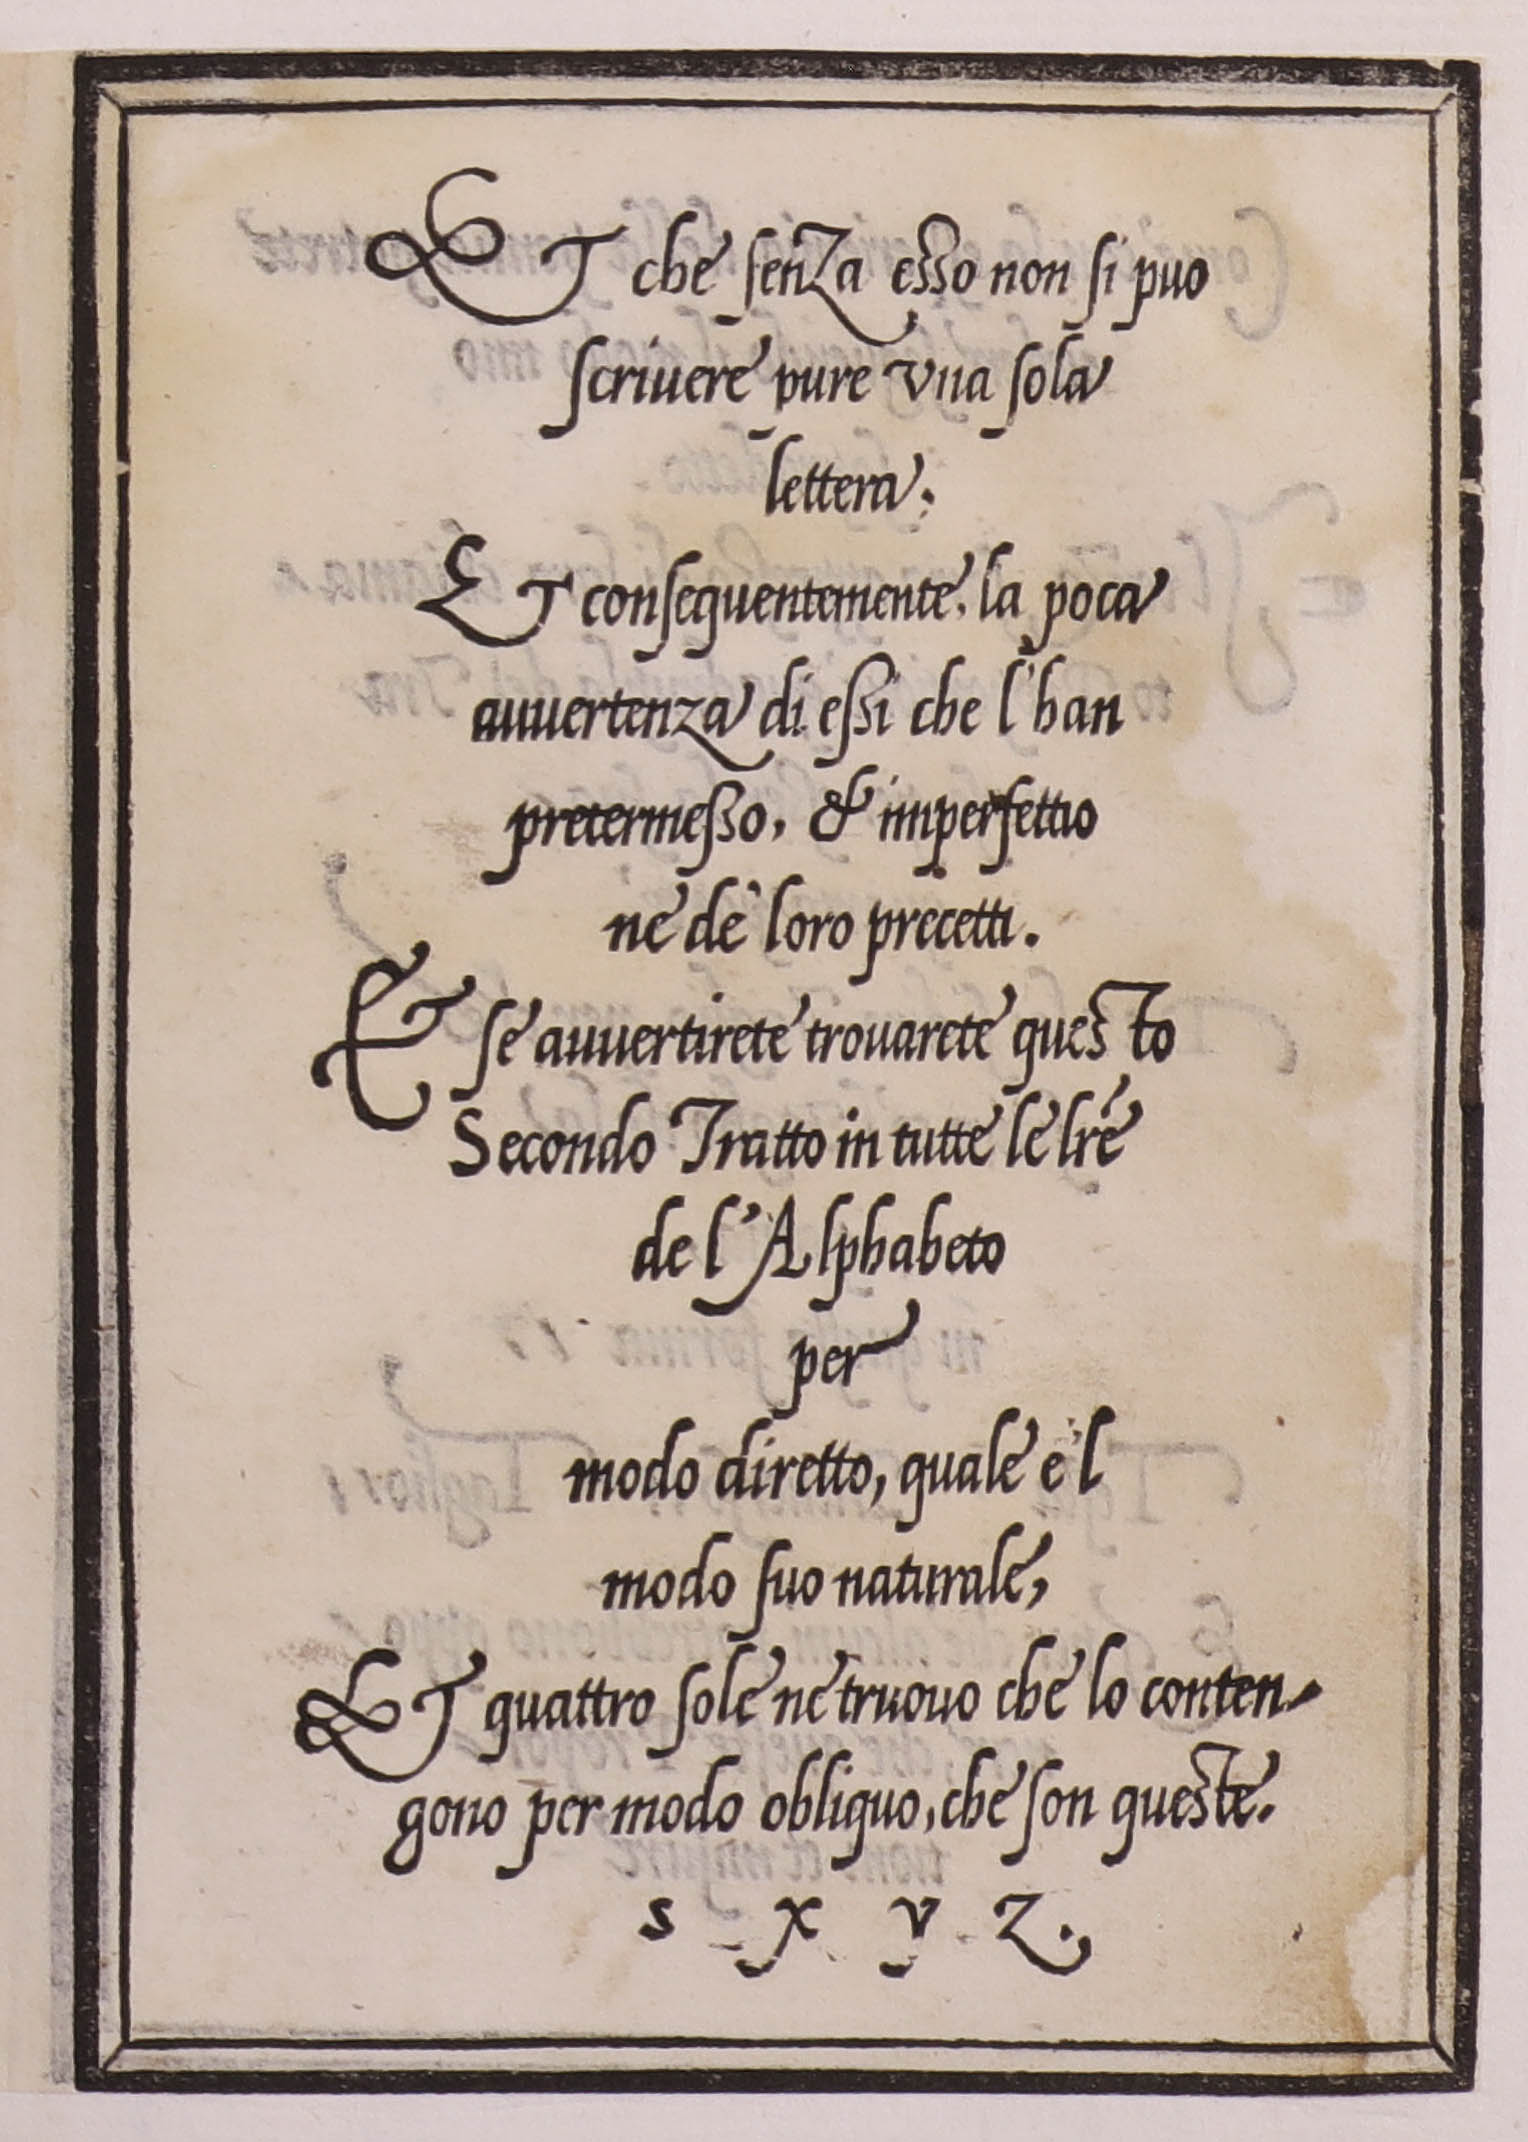 ET che senza esso non si puo
scriuere pure vna sola
lettera.
ET consequentemente, la poca
auuertenza di essi che l'han
pretermesso, & imperfettio
ne de' loro precetti.
E se auuertirete trouarete questo
Secondo Tratto in tutte le lr̃e
de l'Alphabeto
per
modo diretto, quale e'l
modo suo naturale,
ET quattro sole ne truouo che lo conten-
gono per modo obliquo, che son queste.
s x y z.